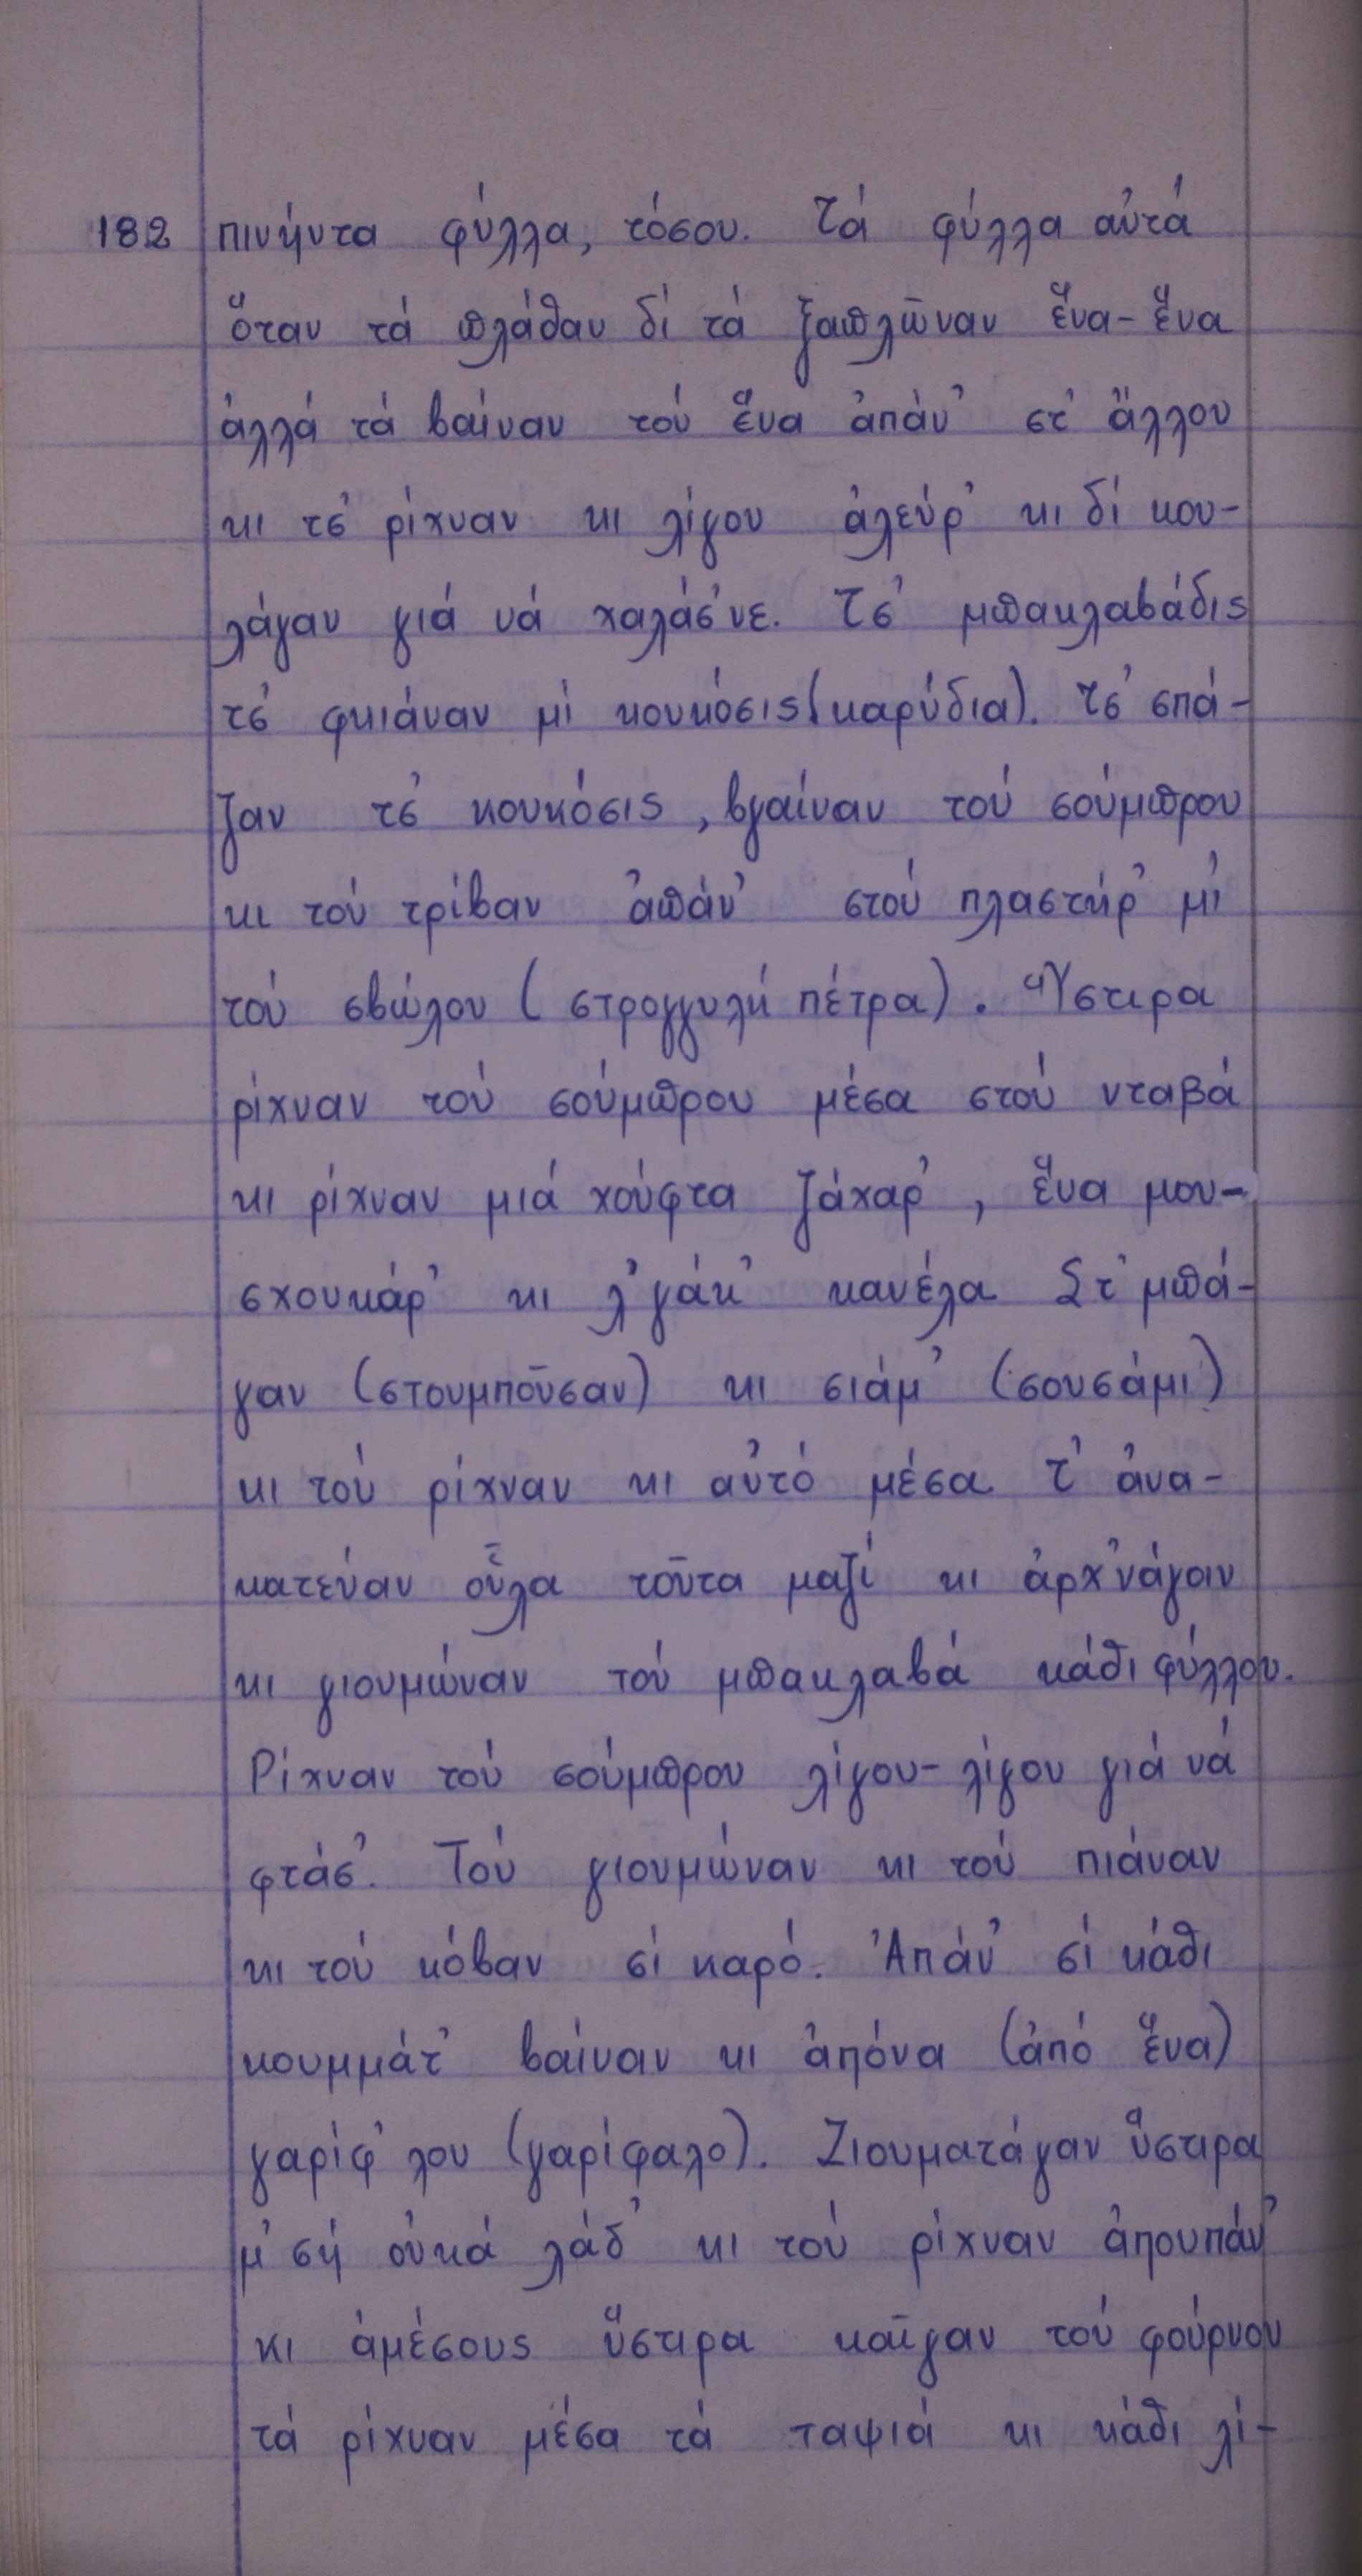 182 πινήντα φύλλα, τόσου. Τά φύλλα αὐτά
ὅταν τά πλάθαν δί τά ξαπλῶναν ἕνα-ἕνα
ἀλλά τά βαίναν τού ἕνα ἀπάν' στ' ἄλλου
κι τσ' ρίχναν κι λίγου ἀλεύρ' κι δί κου-
λάγαν γιά νά χαλάσ'νε. Τσ' μπακλαβάδις
τσ' φκιάναν μί κουκόσις (καρύδια). Τσ' σπά-
ζαν τσ' κουκόσις, βγαίναν τού σούμπρου
κι τού τρίβαν ἀπάν' στού πλαστήρ' μί
τού σβώλου (στρογγυλή πέτρα). Ὕστιρα
ρίχναν τού σούμπρου μέσα στού νταβά
κι ρίχναν μιά χούφτα ζάχαρ', ἕνα μου-
σχουκάρ' κι λ'γάκ' κανέλα Στ'μπά-
γαν (στουμποῦσαν) κι σιάμ' (σουσάμι)
κι τού ρίχναν κι αὐτό μέσα. Τ' ἀνα-
κατεύαν οὗλα τοῦτα μαζί κι ἀρχ'νάγαν
κι γιουμώναν τού μπακλαβά κάθι φύλλου.
Ρίχναν τού σούμπρου λίγου-λίγου γιά νά
φτάσ'. Τού γιουμώναν κι τού πιάναν
κι τού κόβαν σί καρό. Ἀπάν' σί κάθι
κουμμάτ' βαίναν κι ἀπόνα (ἀπό ἕνα)
γαρίφ'λου (γαρίφαλο). Ζιουματάγαν ὕστιρα
μ'σή οὐκά λάδ' κι τού ρίχναν ἀπουπάν'
κι ἀμέσους ὕστιρα καῖγαν τού φούρνου
τά ρίχναν μέσα τά ταψιά κι κάθι λί-